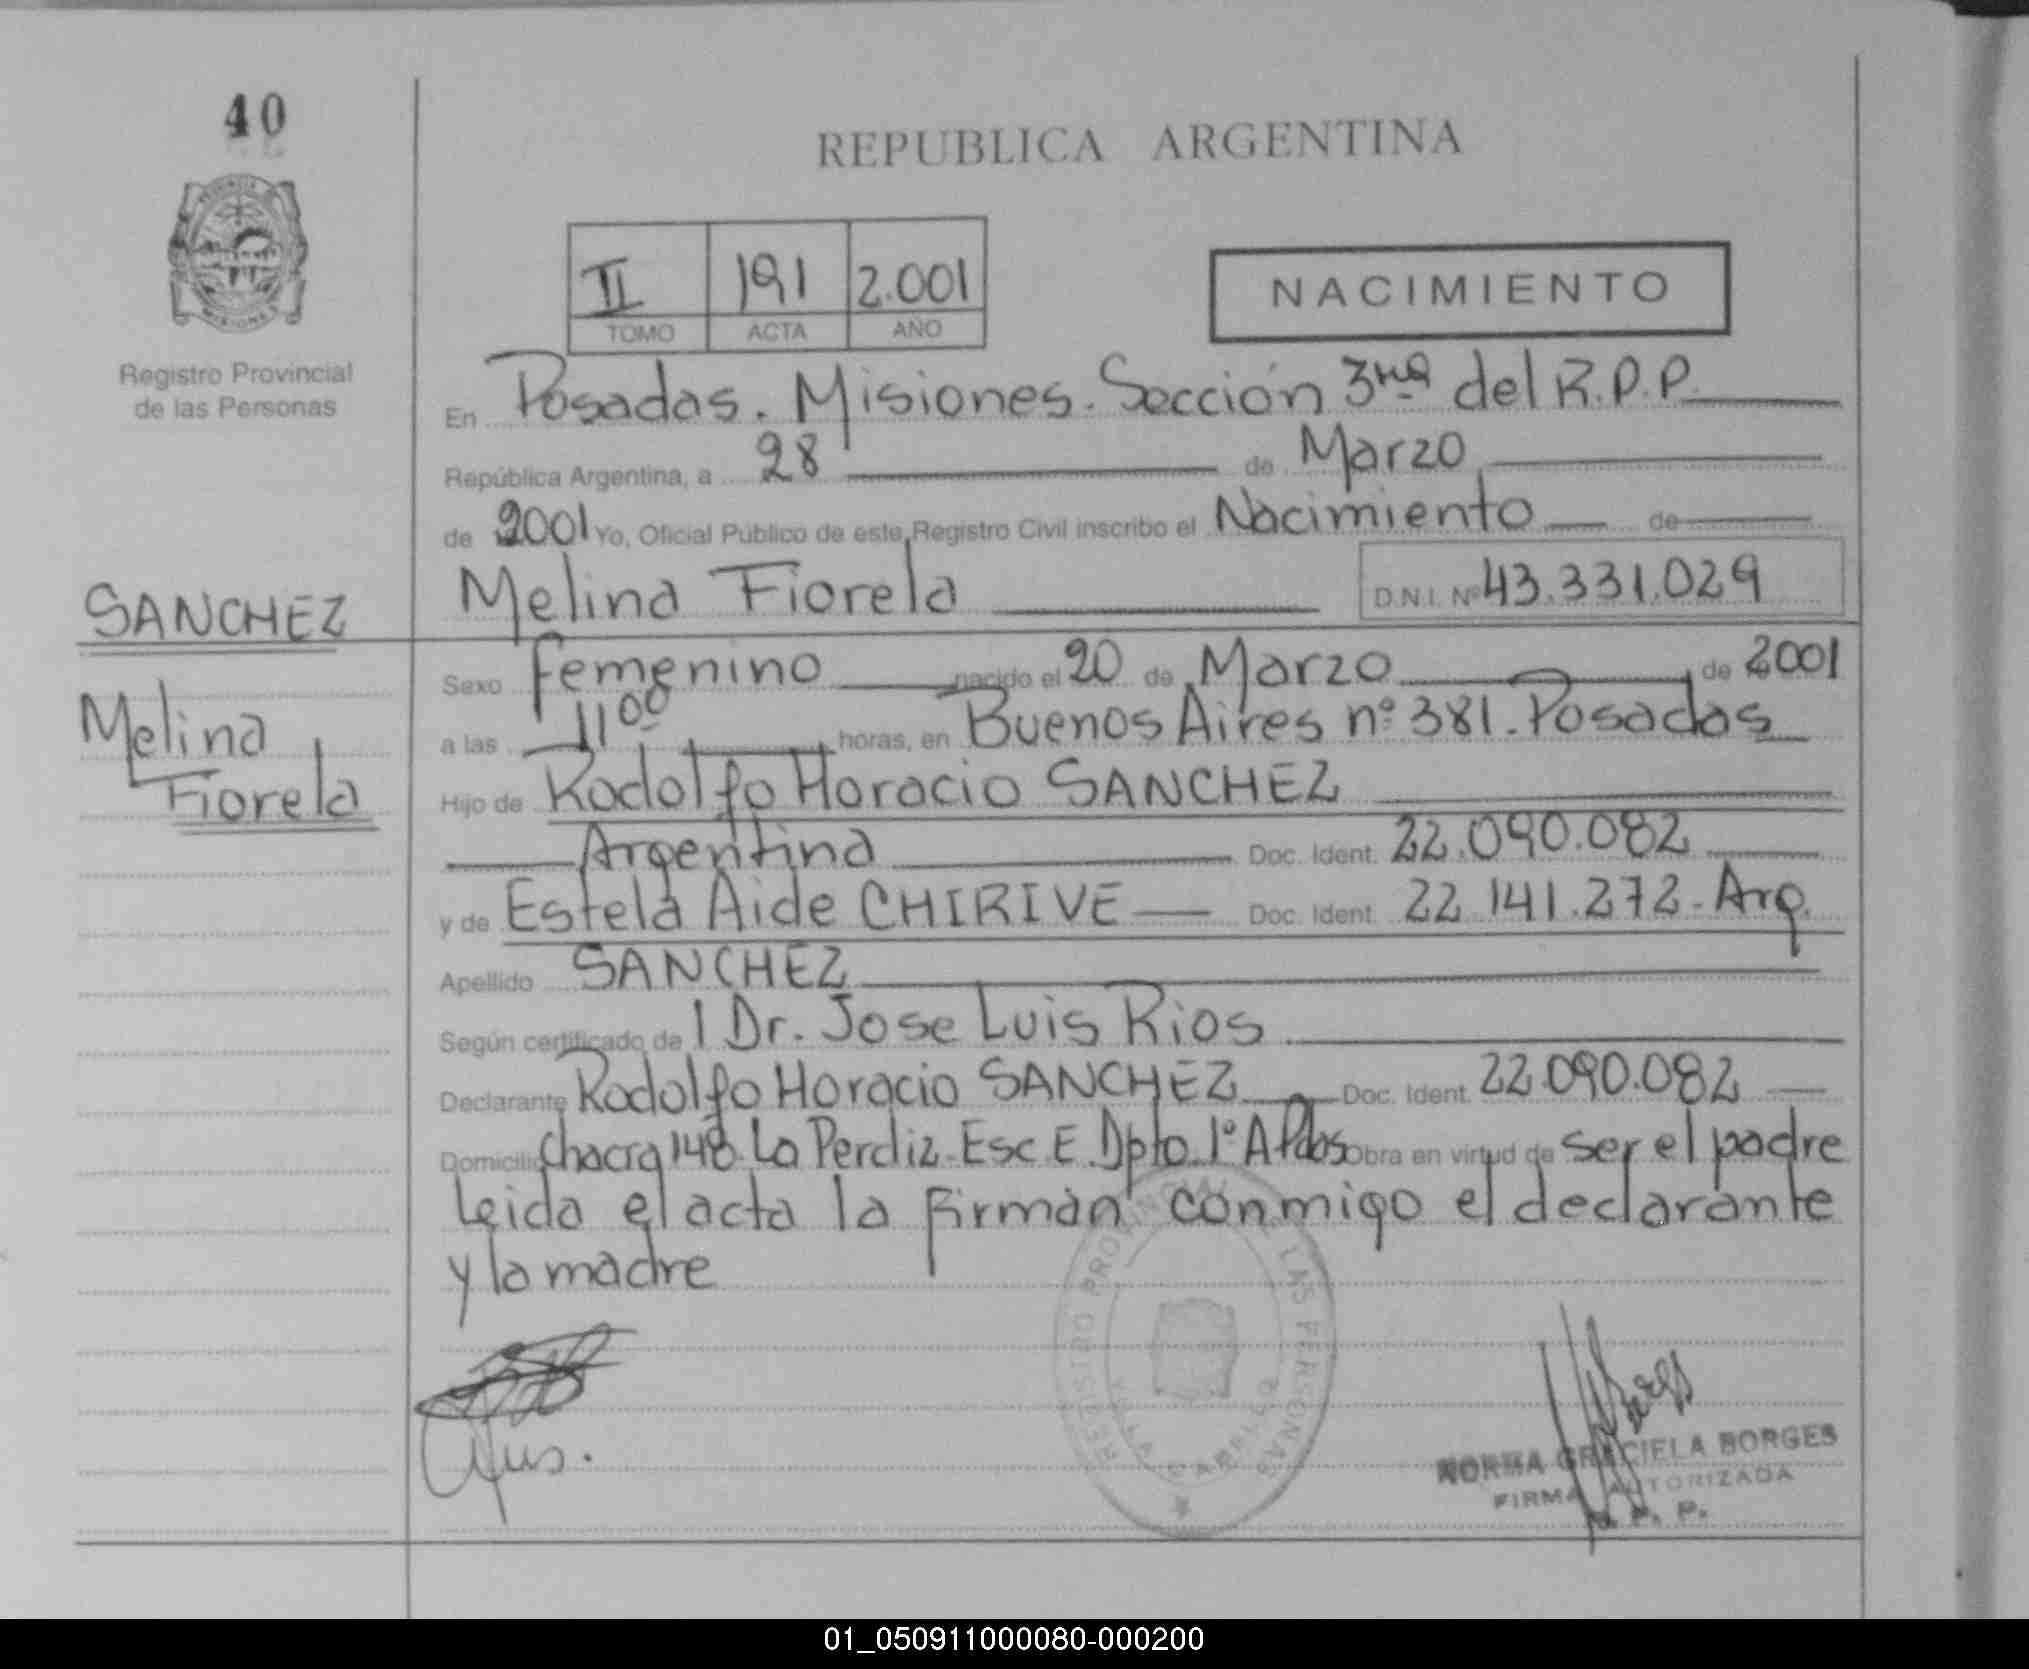 40
REPUBLICA ARGENTINA
II 191 2.001
TOMO ACTA AÑO
NACIMIENTO
PROVINCIA
MISIONES
Registro Provincial
de las Personas
En Posadas. Misiones. Sección 3ra del R.P.P.
República Argentina, a 28 de Marzo
de 2001 Yo, Oficial Público de este Registro Civil inscribo el Nacimiento de
Melina Fiorela D.N.I. Nº 43.331.029
SANCHEZ
Melina
Fiorela
Sexo Femenino nacido el 20 de Marzo de 2001
a las 11 00 horas, en Buenos Aires nº 381. Posadas
Hijo de Rodolfo Horacio SANCHEZ
Argentina Doc. Ident. 22.090.082
y de Estela Aide CHIRIVE Doc. Ident. 22 141.272. Arg.
Apellido SANCHEZ
Según certificado de l Dr. Jose Luis Rios
Declarante Rodolfo Horacio SANCHEZ Doc. Ident. 22.090.082
Domicilio Chacra 148 La Perdiz Esc E. Dpto 1º A Pdas Obra en virtud de ser el padre
Leida el acta la firman conmigo el declarante
y la madre
REGISTRO PROVINCIAL DE LAS PERSONAS
VILLA CABELLO
Borges
NORMA GRACIELA BORGES
FIRMA AUTORIZADA
R. P. P.
01_050911000080-000200